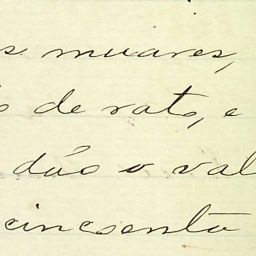 s muares,
s de rato, e
dão o val
cincoenta